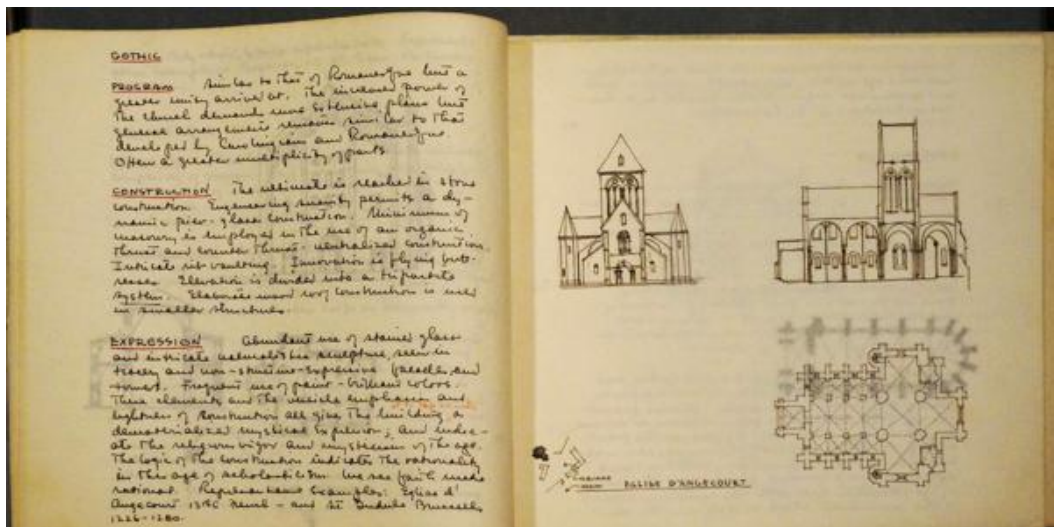 GOTHIC
PROGRAM Similar to that of Romanesque but a
greater unity arrived at. The increased power of
the church demands more extensive plans but
general arrangements remains similar to that
developed by Carolingians and Romanesque.
Often a greater multiplicity of parts
CONSTRUCTION The ultimate is reached in stone
construction. Engineering security permits a dy-
namic pier-glass construction. Minimum of
masonry is employed in the use of an organic
thrust and counter thrust - neutralized construction.
Intricate rib vaulting. Innovation is flying butt-
resses. Elevation is divided into a tripartite
system. Elaborate wood roof construction is used
in smaller structures.
EXPRESSION Abundant use of stained glass
and intricate naturalistic sculpture, seen in
tracery and non-structure-expressive facades, and
towers. Frequent use of paint - brilliant colors.
These elements and the vertical emphasis and
lightness of construction all give the building a
dematerialized mystical expression; and indic-
ate the religious vigor and mysticism of the age.
The logic of the construction indicates the rationality
in this age of scholasticism. We see faith made
rational. Representative examples: Eglise d'
Angecourt 13th - and St. Gudule Brussels
1226-1280.
EGLISE D'ANGECOURT